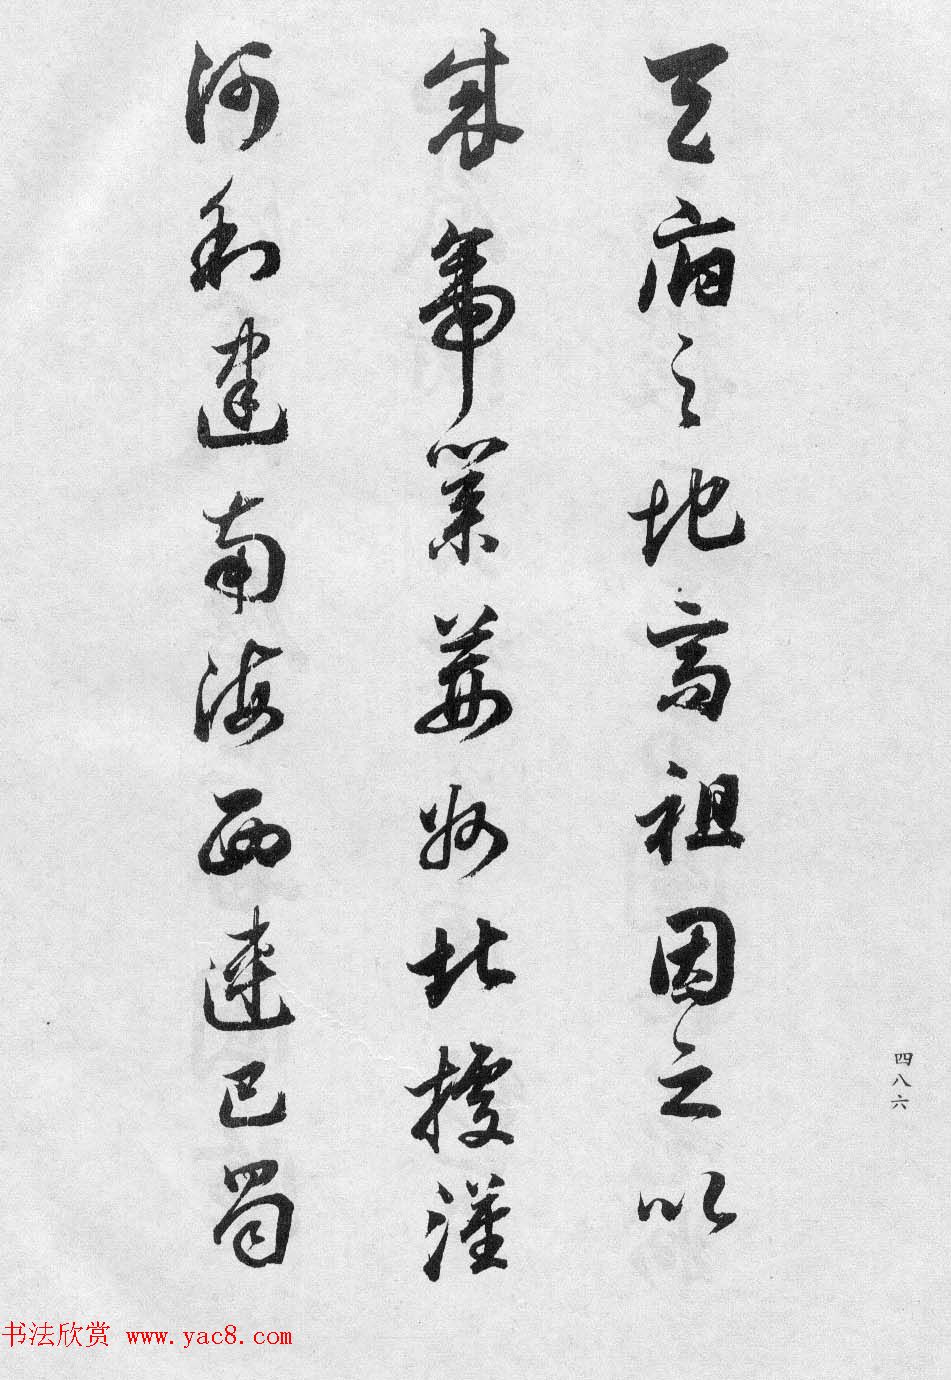 天府之地高祖因之以
成帝業荊州北據漢
河利建南海西連巴蜀
四八六
书法欣赏 www.yac8.com